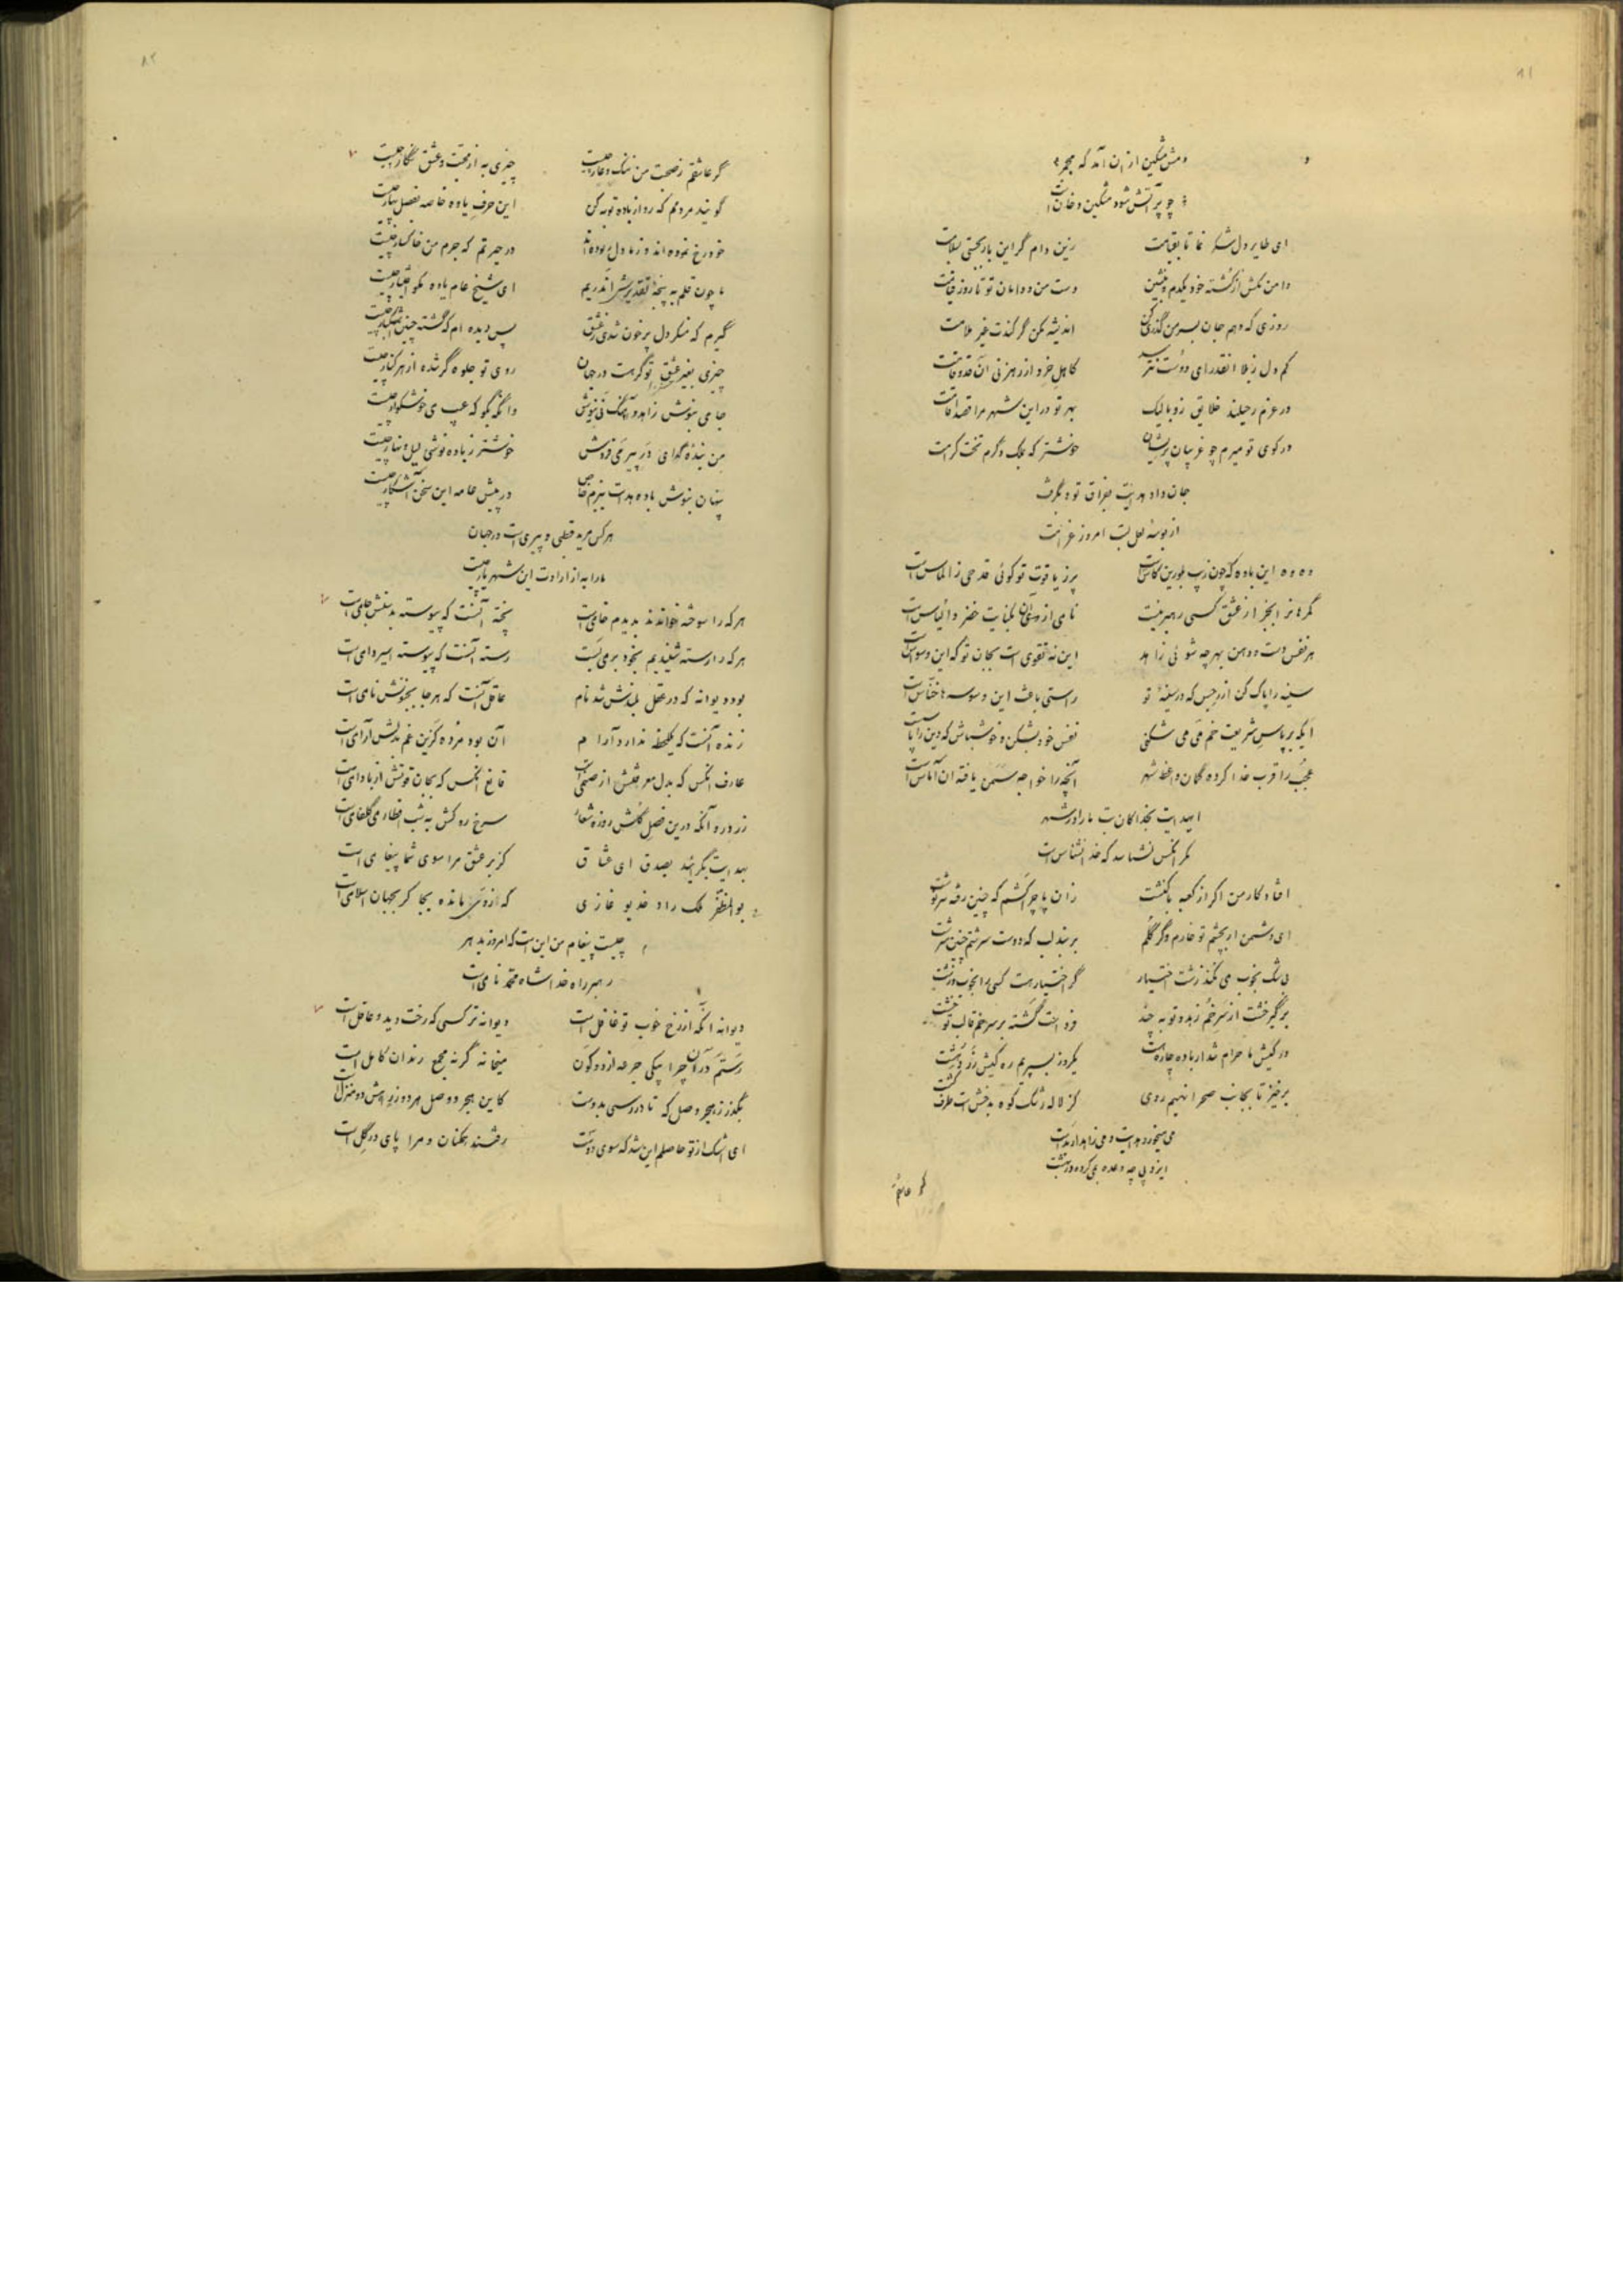 ۸۱
دمش مشکین از ان آمد که مجمر
چو پر آتش شود مشکین دخان است
ای طایر دل شکر نما تا بقیامت زین دام گر این بار بجستی بسلامت
دامن مکش از کشته خود یکدم و بنشین دست من و دامان تو تا روز قیامت
روزی که دهم جان بسر من گذری کن اندیشه مکن گر کندت غیر ملامت
کم دل ز بلا انقدر ای دوست نترسد کاهل خرد از رهزنی آن قد و قامت
در عزم رحیلند خلایق ز وبا لیک بهر تو در این شهر مرا قصد اقامت
در کوی تو میرم چو غریبان پریشان خوشتر که بملک دگرم تخت کرامت
جان داد هدایت بفراق تو و بگرفت
از بوسهٔ لعل لبت امروز غرامت
وه وه این باده که چون زیب بلورین کاس است پر ز یاقوت تو گوئی قدحی ز الماس است
گمرهانرا بجز از عشق کسی رهبر نیست نامی از وی بکنایت خضر و الیاس است
هر نفس دست و دهن بهر چه شوئی زاهد این نه تقوی است بجان تو که این وسواس است
سینه را پاک کن از رجس که در سینهٔ تو راستی باعث این وسوسه ها خناس است
ایکه بر پاس شریعت خم می می شکنی نفس خود بشکن و خوش باش که دین را پاس است
عجب را قرب خدا کرده گمان واعظ شهر آنچه را خواجه سمن یافته آن آماس است
ایهدایت بخدا کان بت ما را در شهر
مگر آنکس نشناسد که خدا نشناس است
افتاد کار من اگر از کعبه با کنشت زان پا چرا کشم که چنین رفته سرنوشت
ای دشمن ار بچشم تو خارم وگر گلم بر بند لب که دوست سرشتم چنین سرشت
بی شک بخوب می نکند زشت اختیار گر اختیار هست کسی را بخوب و زشت
برگیر خشت از سر خم زهد و توبه چند فرداست گشته بر سر خم قالب تو خشت
در کیش ما حرام شد ار باده چاره هست یکروز بسپریم ره کیش زردهشت
برخیز تا بجانب صحرا نهیم روی کز لاله رشک کوه بدخش است طرف کشت
می میخورد هدایت و می زاهد ار بد است
ایزد پی چه وعده بمی کرده در بهشت
گر عاشقم
۸۲
گر عاشقم ز صحبت من ننگ و عار چیست چیزی به از محبت و عشق نگار چیست
گویند مردمم که رو از باده توبه کن این حرف یاده خاصه بفصل بهار چیست
خود رخ نموده اند و ز ما دل ربوده اند در حیرتم که جرم من خاکسار چیست
ما چون قلم به پنجهٔ تقدیرش اندریم ای شیخ عام یاده مگو اختیار چیست
گیرم که منکر دل پر خون شدی ز عشق پس دیده ام که گشته چنین اشکبار چیست
چیزی بغیر عشق تو گر هست در جهان روی تو جلوه گر شده از هر کنار چیست
جامی بنوش زاهد و آهنگ نی نیوش وانگه بگو که عیب می خوشگوار چیست
من بندهٔ گدای در پیر می فروش خوشتر ز باده نوشی لیل و نهار چیست
پنهان بنوش باده هدایت ببزم خاص در پیش عامه این سخن آشکار چیست
هر کس مرید قطبی و پیری است در جهان
ما را به از ارادت این شهریار چیست
هر که را سوخته خواندند بدیدم خامی است پخته آنست که پیوسته بدستش جامی است
هر که را رسته شنیدیم بخود برمی بست رسته آنست که پیوسته اسیر دامی است
بود دیوانه که در عقل بلندش شد نام عاقل آنست که هر جا بجنونش نامی است
زنده آنست که یکلحظه ندارد آرام آن بود مرده کزین غم بدلش آرامی است
عارف انکس که بدل معرفتش از صنمی است فارغ انکس که بجان قوتش از بادامی است
زرد رو آنکه درین فصل گلش روزه شعار سرخ رو کش به شب افطار می گلفامی است
بهدایت بگرائید بصدق ای عشاق کز بر عشق مرا سوی شما پیغامی است
بوالمظفر ملک راد خدیو غازی که از وی مانده بجا گر بجهان اسلامی است
چیست پیغام من این است که امروز بدهر
رهبر راه خدا شاه محمد نامی است
دیوانه آنکه از رخ خوب تو غافل است دیوانه تر کسی که رخت دید و عاقل است
رستم در آن چرا بیکی جرعه از دو کون میخانه گر نه مجمع رندان کامل است
بگذر ز هجر و وصل که تا در رسی بدوست کاین هجر و وصل هر دو زراهش دو منزل است
ای اشک از تو حاصلم این شد که سوی دوست رفتند همکنان و مرا پای در گل است